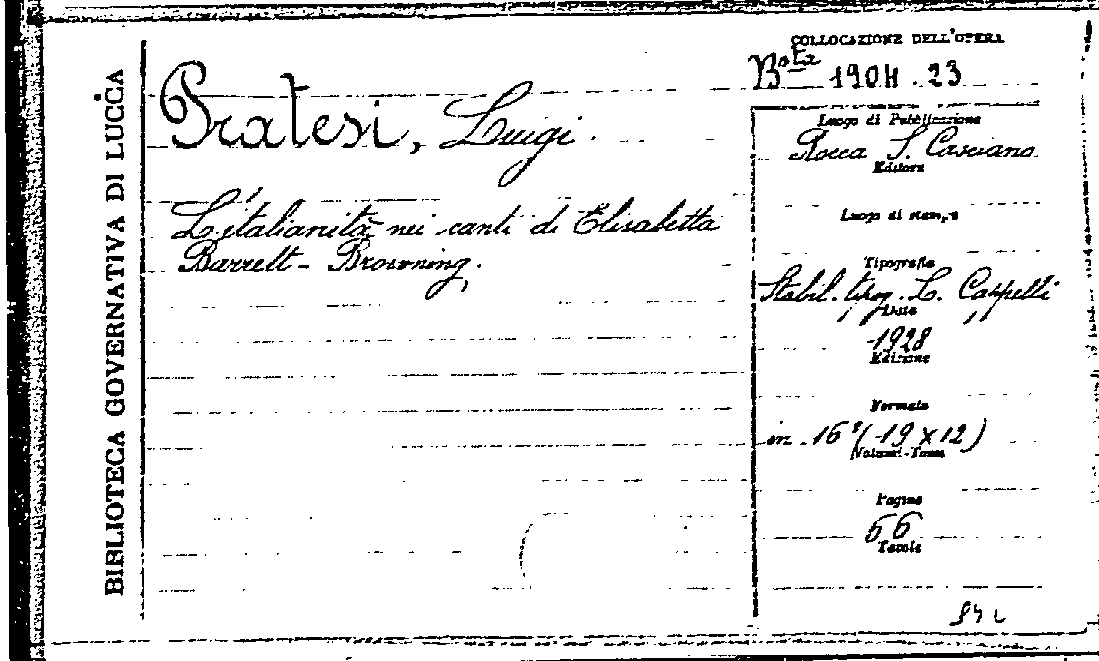 BIBLIOTECA GOVERNATIVA DI LUCCA
Pratesi, Luigi.
L'italianità nei canti di Elisabetta
Barrett-Browning.
COLLOCAZIONE DELL'OPERA
Bta 1904.23
Luogo di Pubblicazione
Rocca S. Casciano
Editore
Luogo di stampa
Tipografia
Stabil. tipog. L. Cappelli
Data
1928
Edizione
Formato
in 16° (19 x 12)
Volumi-Tomi
Pagine
66
Tavole